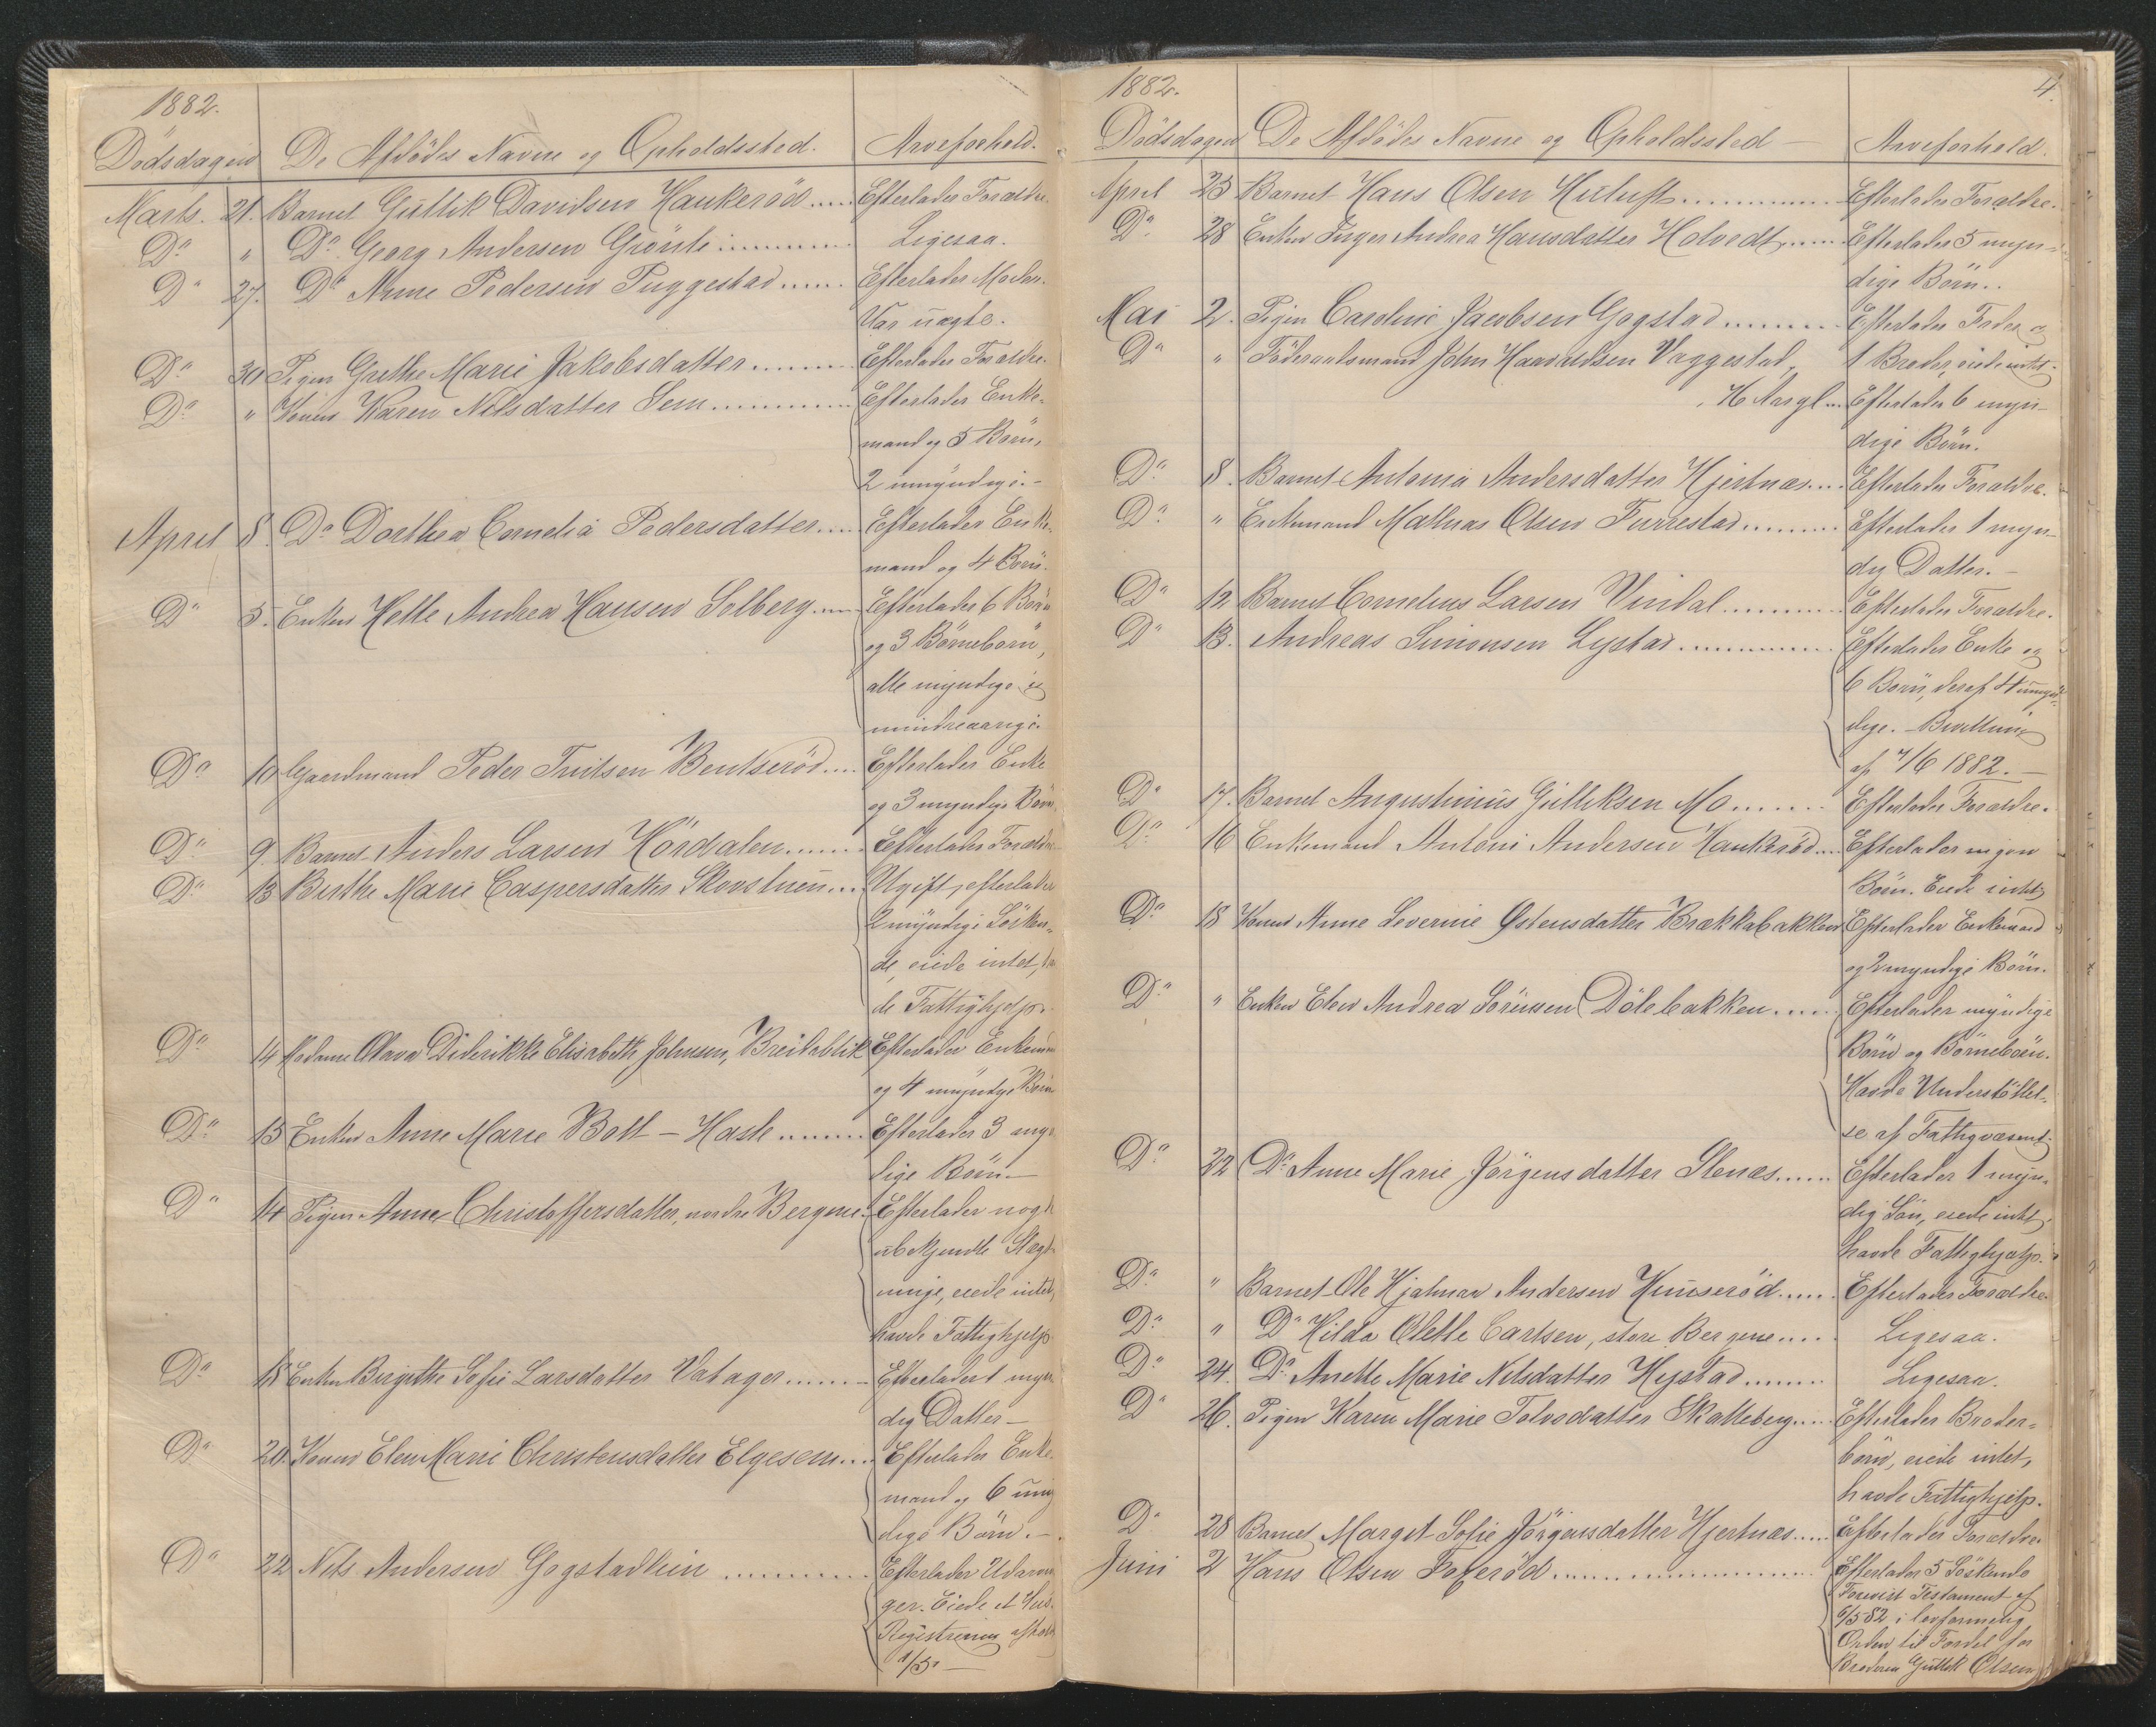 1882.
Dødsdagen De Afdødes Navne og Opholdssted. Arveforhold.
Marts. 21. Barnet Gullik Davidsen Haukerød..... Efterlader Forældre.
Do " Do Georg Andersen Grønli .......... Ligesaa.
Do 27. Do Anne Pedersen Puggestad ...... Efterlader Moder.
Var uægte.
Do 30 Pigen Grethe Marie Jakobsdatter ........ Efterlader Forældre.
Do " Konen Karen Nilsdatter Sem ............ Efterlader Enke-
mand og 5 Børn,
2 umyndige.-
April 8. Do Dorthea Cornelia Pedersdatter.... Efterlader Enke-
mand og 4 Børn.
Do 5. Enken Helle Andrea Hansen Solberg.... Efterlader 6 Børn
og 3 Børnebørn,
alle myndige og
mindreaarige.
Do 10 Gaardmand Peder Tnitsen Bentserød.... Efterlader Enke
og 3 myndige Børn
Do 9. Barnet Anders Larsen Hørdalen....... Efterlader Forældre
Do 13 Berthe Marie Caspersdatter Skovstuen... Ugift, efterlader
2 myndige Søsken-
de, eiede intet,
de Fattighjelp.
Do 14 Madame Olava Diderikke Elisabeth Johnsen, Breidablik Efterlader Enkemand
og 4 umyndige Børn
Do 15 Enken Anne Marie Bolt - Hasle ........ Efterlader 3 myn
dige Børn-
Do 14 Pigen Anne Christoffersdatter, nordre Bergene. Efterlader nogle
ubekjendte Slægt-
ninge, eiede intet,
havde Fattighjelp
Do 18 Enken Birgithe Sofie Larsdatter Vatager ....... Efterlader 1 myn
dig Datter-
Do 20. Konen Elen Marie Christensdatter Elgesem... Efterlader Enke-
mand og 6 umyn
dige Børn.-
Do 22 Nils Andersen Gogstadhein .......... Efterlader Udarvin
ger. Eiede et Hus.
Registrering afholdt
1/5.-
1882. 4.
Dødsdagen De Afdødes Navne og Opholdssted - Arveforhold.
April 25 Barnet Hans Olsen Huluft ............... Efterlader Forældre.
Do 28 Enken Inger Andrea Hansdatter Holvedt....... Efterlader 5 myn-
dige Børn..
Mai 2. Pigen Caroline Jacobsen Gogstad .......... Efterlader Fader og
Do " Føderaadsmand John Haavaldsen Vaggestad, 1 Broder, eiede intet.
H Aargl... Efterlader 6 myn-
dige Børn.
Do 8. Barnet Antonia Andersdatter Hjertnæs.... Efterlader Forældre.
Do " Enkemand Mathias Olsen Furrestad......... Efterlader 1 myn-
dig Datter.-
Do 12 Barnet Cornelius Larsen Vindal.......... Efterlader Forældre.
Do 13. Andreas Simonsen Lystad .............. Efterlader Enke og
6 Børn, deraf 4 umyn-
dige. - Bevilling
af 7/6 1882.-
Do 17. Barnet Augustinius Gulliksen Mo....... Efterlader Forældre.
Do 16 Enkemand Antoni Andersen Haukerød... Efterlader ingen
Børn. Eiede intet,
Do 18 Konen Anne Severine Østensdatter Brækkabakken Efterlader Enkemand
og 2 myndige Børn.
Do " Enken Elen Andrea Sørensen Dølebakken ..... Efterlader myndige
Børn og Børnebørn.
Havde Understøttel-
se af Fattigvæsenet.
Do 22 Do Anne Marie Jørgensdatter Stenæs...... Efterlader 1 myn-
dig Søn, eiede intet,
havde Fattighjælp.
Do " Barnet Ole Hjalmar Andersen Hunserød..... Efterlader Forældre.
Do " Do Hilda Olette Carlsen, store Bergene.... Ligesaa.
Do 24. Do Anette Marie Nilsdatter Hystad........ Ligesaa.
Do 26. Pigen Karen Marie Tolvsdatter Skalleberg..... Efterlader Broder-
børn, eiede intet,
havde Fattighjelp.
Do 28 Barnet Margit Sofie Jørgensdatter Hjertnæs..... Efterlader Forældre.
Juni 2 Hans Olsen Fokserød........................ Efterlader 5 Søskende
Forevist Testament af
6/5 82 i lovformelig
Orden til Fordel for
Broderen Gullik Olsen